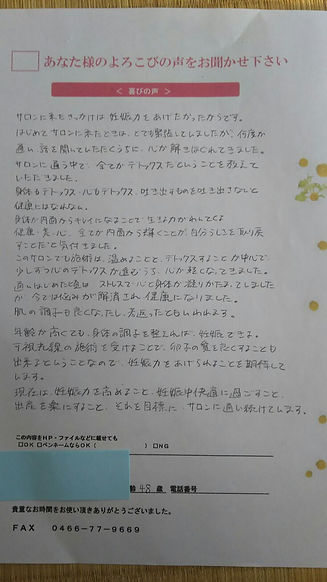 あなた様のよろこびの声をお聞かせ下さい
＜ 喜びの声 ＞
サロンに来たきっかけは、妊娠力をあげたかったからです。
はじめてサロンに来たときは、とても緊張していましたが、何度か
通い、話を聞いていただくうちに、心が解きほぐれてきました。
サロンに通う中で、全てがデトックスだということを教えて
いただきました。
身体もデトックス、心もデトックス、吐き出すものを吐き出さないと
健康にはなれない。
身体が内面からキレイになることで生まれかわれてくる
健康・美・心、全てが内面から輝くことが自分らしさを取り戻
すことだと気付きました。
このサロンでも施術は、温めることと、デトックスすることが中心で
少しずつ心のデトックスが進むうち、心が軽くなってきました。
通いはじめた頃は、ストレスで心と身体が凝りかたまっていました
が、今では悩みが解消され、健康になりました。
肌の調子も良くなったし、若返ったともいわれます。
年齢が高くても、身体の調子を整えれば、妊娠できる。
可視光線の施術を受けることで、卵子の質を良くすることも
出来るということなので、妊娠力をあげられることを期待して
います。
現在は、妊娠力を高めること、妊娠中快適に過ごすこと、
出産を楽にすること、それを目標に、サロンに通い続けています。
この内容をHP・ファイルなどに載せても
□OK □ペンネームならOK（ ） □NG
齢 48 歳 電話番号
貴重なお時間をお使い頂きありがとうございました。
FAX 0466-77-9669